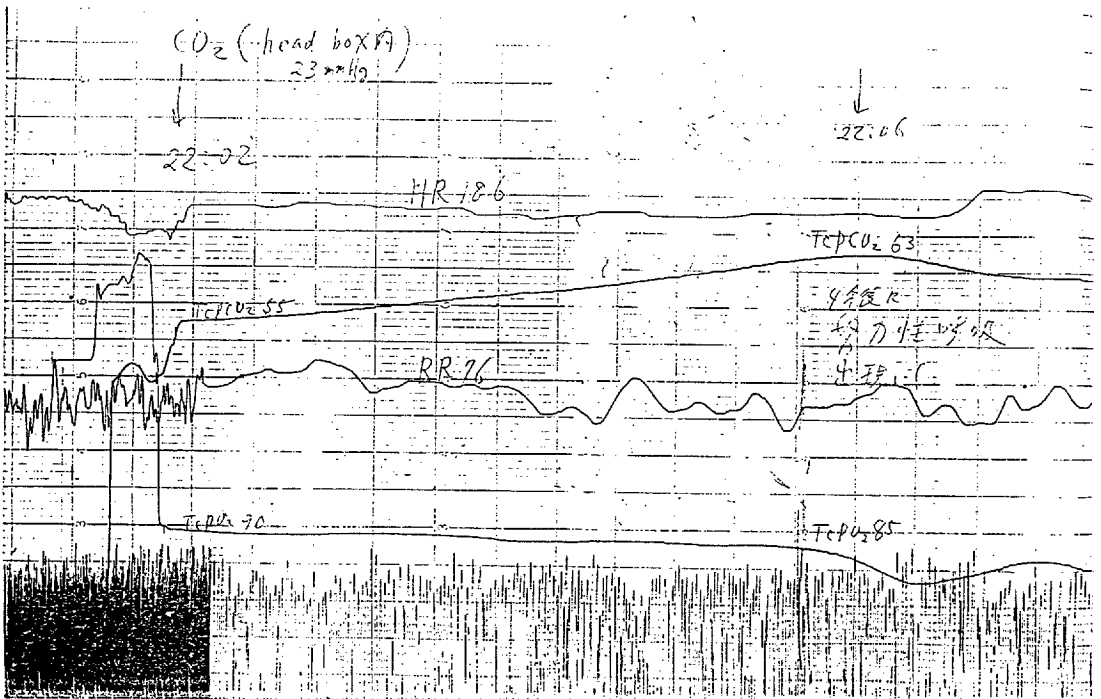 CO₂ (head box内)
23 mmHg
22:02
22:06
HR 186
TcPCO₂ 63
TcPCO₂ 55
4分後に
努力性呼吸
出現
RR 76
TcPO₂ 90
TcPO₂ 85